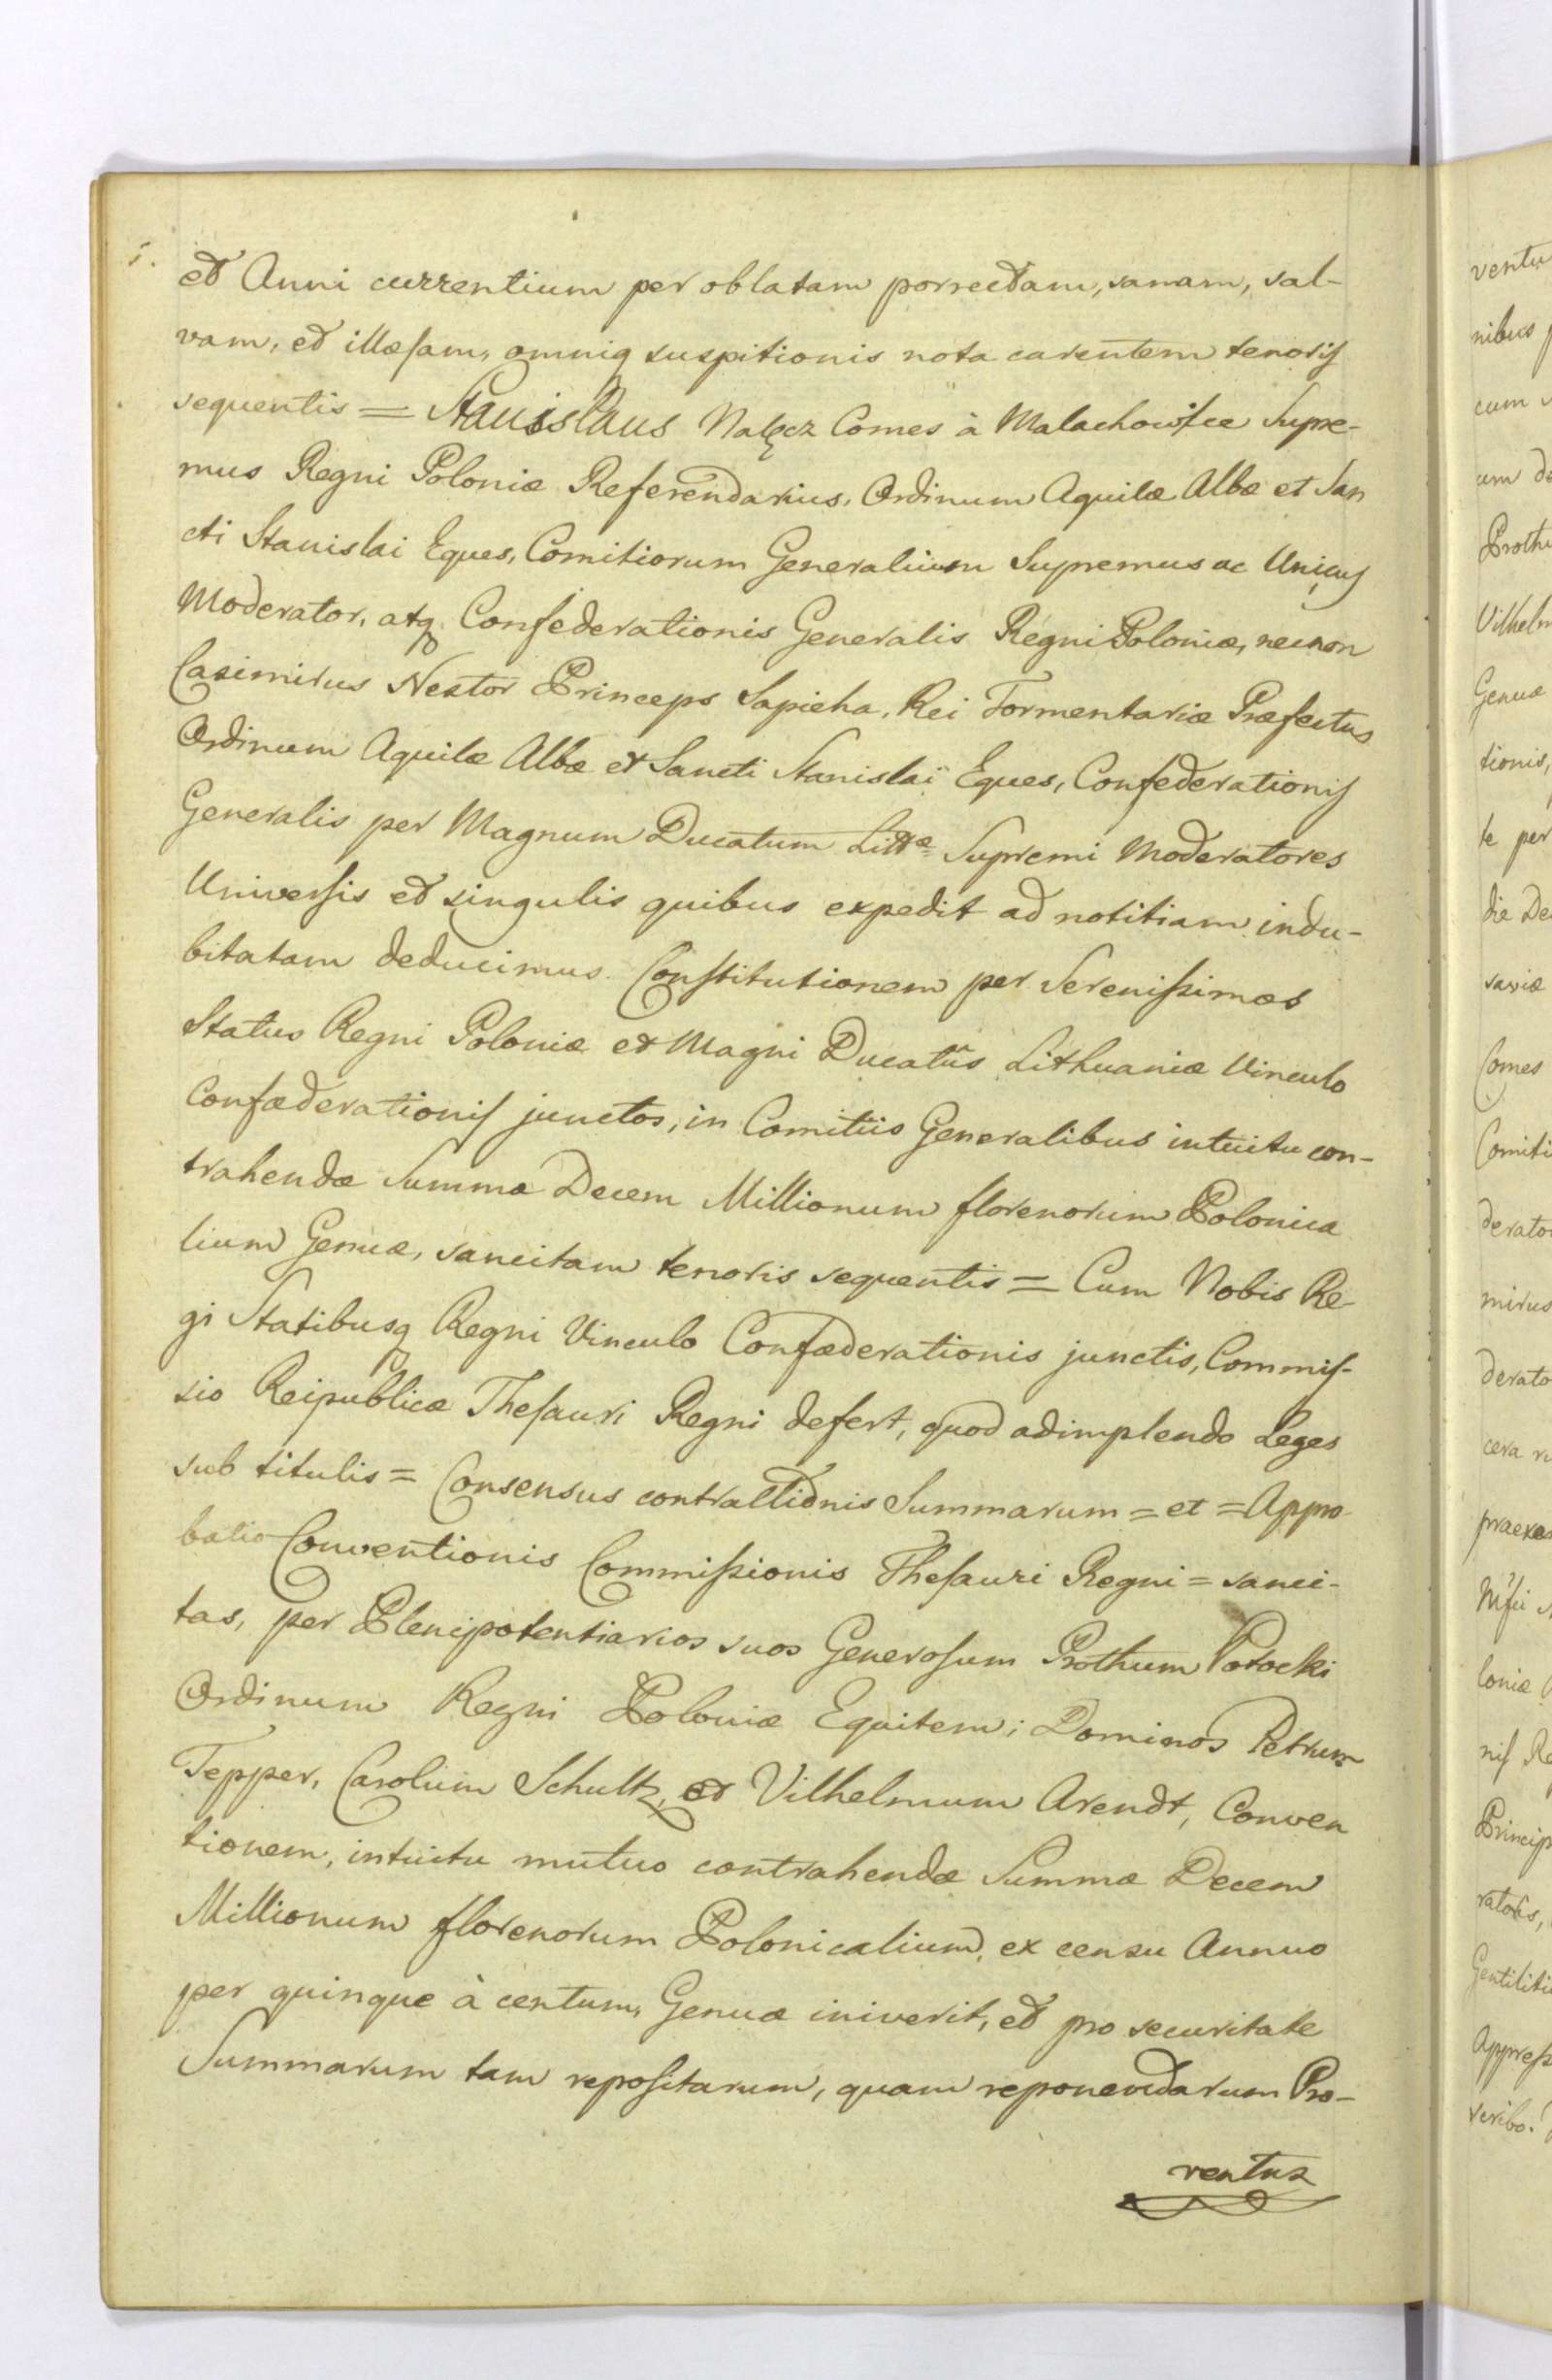 et Anni currentium per oblatam porrectam, sanam, sal-
vam, et illæsam, omniq suspitionis nota carentem tenoris
sequentis = Stanislaus Nałęcz Comes à Malachowice Supre-
mus Regni Poloniæ Referendarius, Ordinum Aquilæ Albæ et San
cti Stanislai Eques, Comitiorum Generalium Supremus ac Unicus
Moderator, atq Confederationis Generalis Regni Poloniæ, necnon
Casimirus Nestor Princeps Sapieha, Rei Tormentariæ Præfectus
Ordinum Aquilæ Albæ et Sancti Stanislai Eques, Confederationis
Generalis per Magnum Ducatum Littæ Supremi Moderatores
Universis et singulis quibus expedit ad notitiam indu-
bitatam deducimus Constitutionem per Serenissimos
Status Regni Poloniæ et Magni Ducatûs Lithuaniæ Vinculo
Confæderationis junctos, in Comitiis Generalibus intuitu con-
trahendæ Summæ Decem Millionum florenorum Polonica
lium Genuæ, sancitam tenoris sequentis = Cum Nobis Re-
gi Statibusq Regni Vinculo Confæderationis junctis, Commis-
sio Reipublicæ Thesauri Regni defert, quod adimplendo Leges
sub titulis = Consensus contractionis Summarum = et = Appro-
batio Conventionis Commissionis Thesauri Regni = sanci-
tas, per Plenipotentiarios suos Generosum Prothum Potocki
Ordinum Regni Poloniæ Equitem; Dominos Petrum
Tepper, Carolum Schultz, et Vilhelmum Arendt, Conven
tionem, intuitu mutuo contrahendæ Summæ Decem
Millionum florenorum Polonicalium, ex censu Annuo
per quinque à centum, Genuæ iniverit, et pro securitate
Summarum tam repositarum, quam reponendarum Pro-
ventus
ventu
nibus
cum
um de
Prothu
Vilhelm
Genuæ
tionis,
te per
die De
saviæ
Comes
Comiti
derato
mirus
derato
cera
praexa
loniæ
nis Re
Princip
ratoris,
Gentiliti
Appress
scribo.